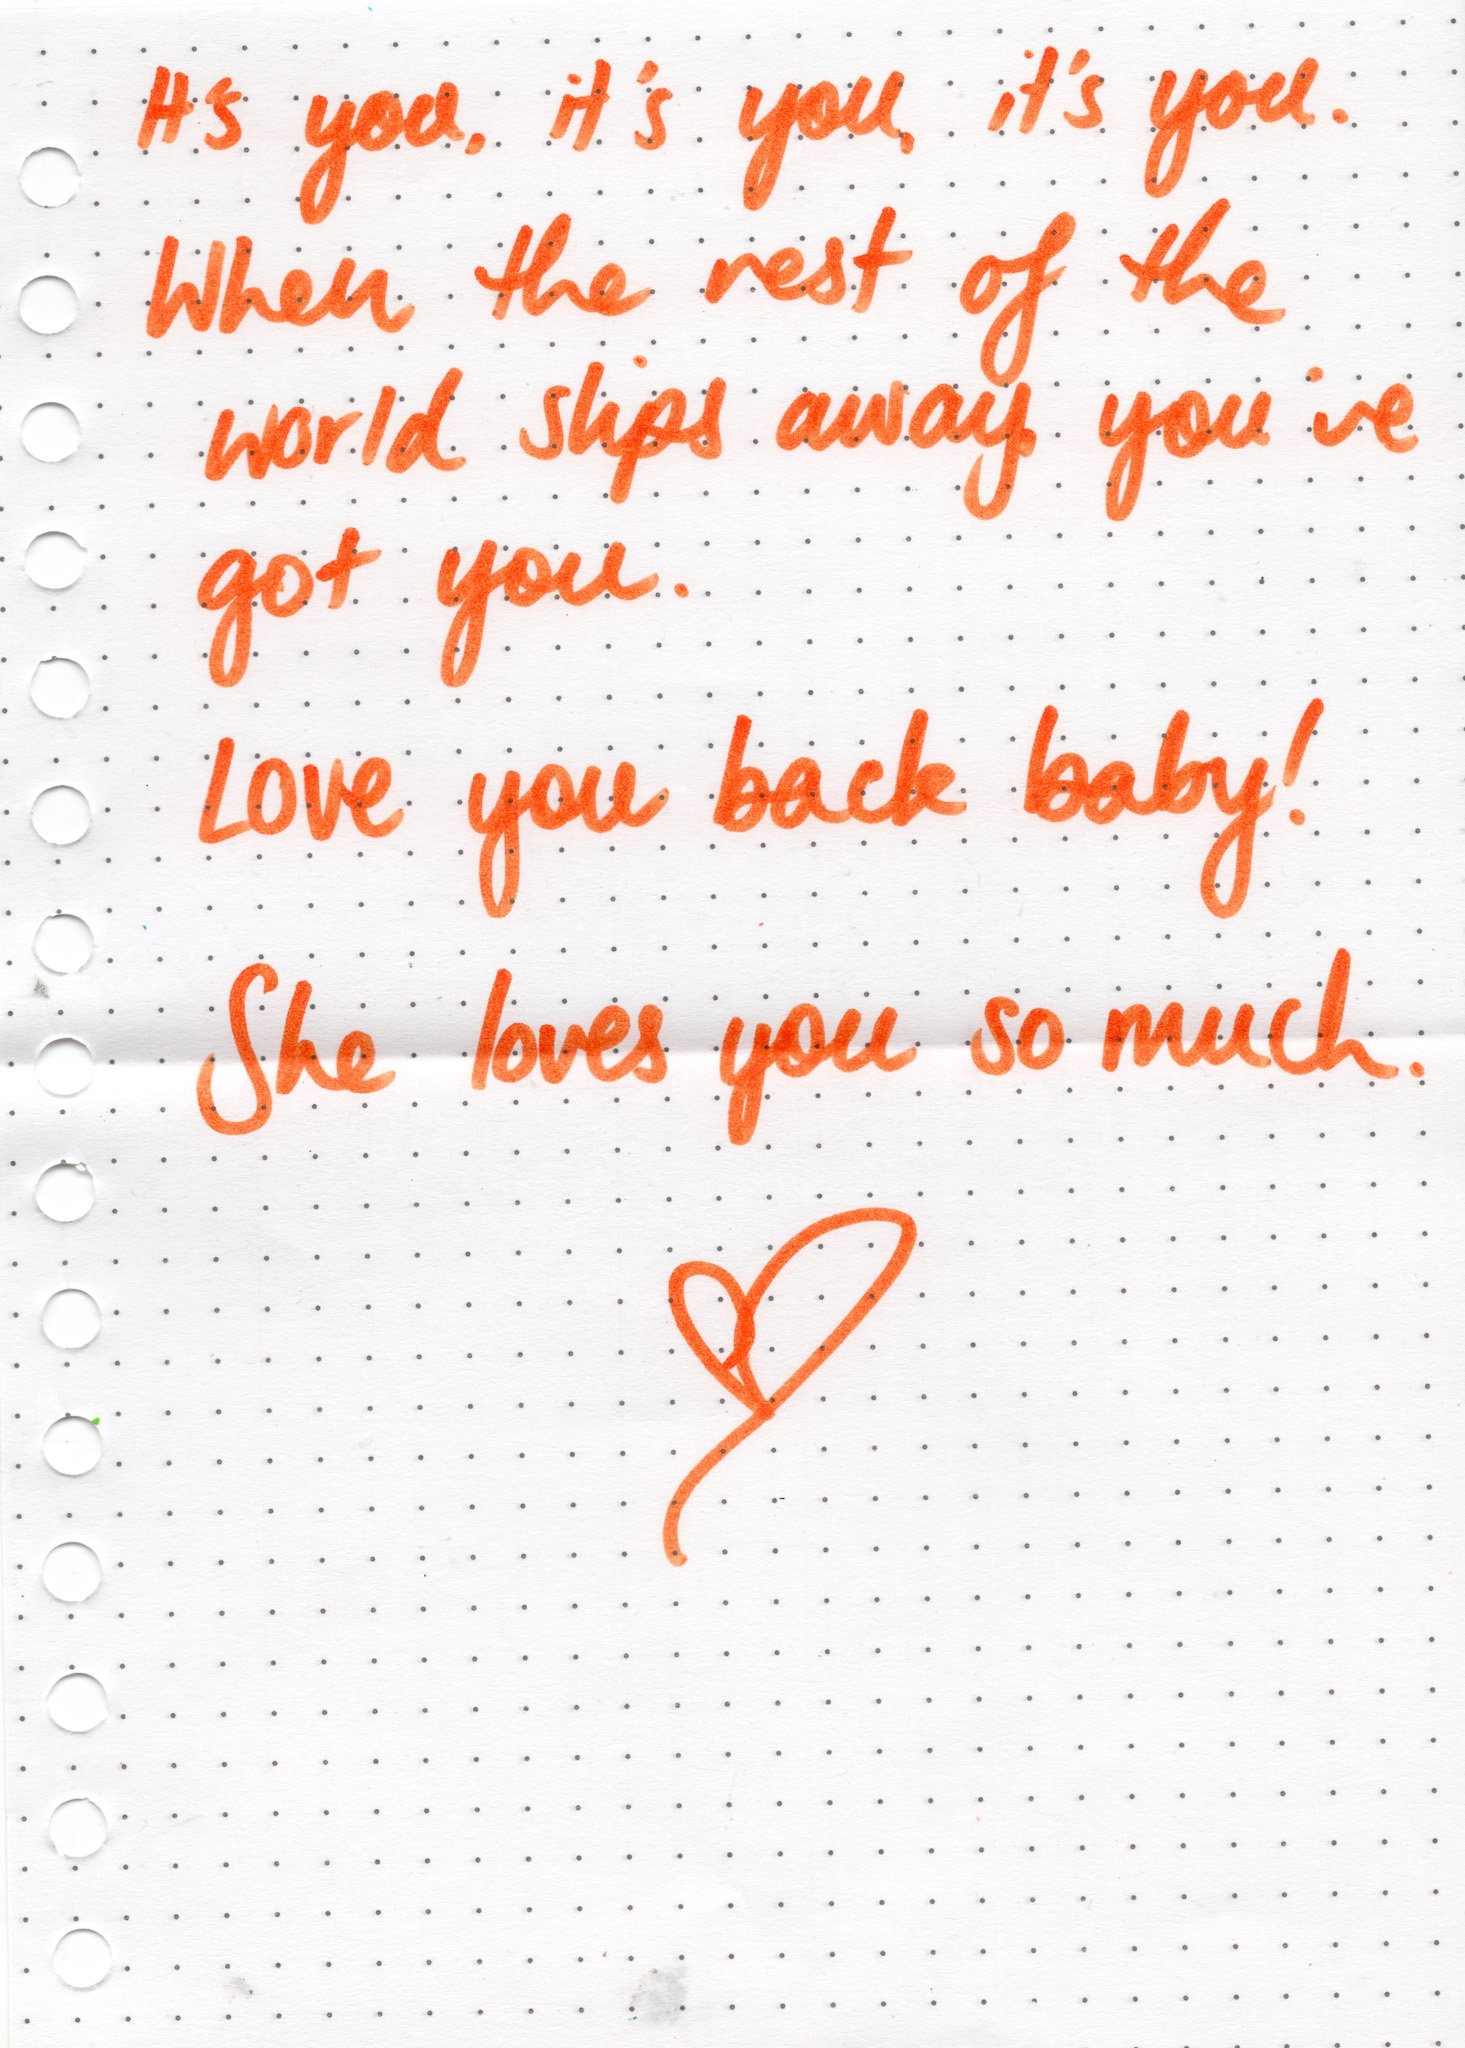 It's you, it's you, it's you.
When the rest of the
world slips away you've
got you.
Love you back baby!
She loves you so much.